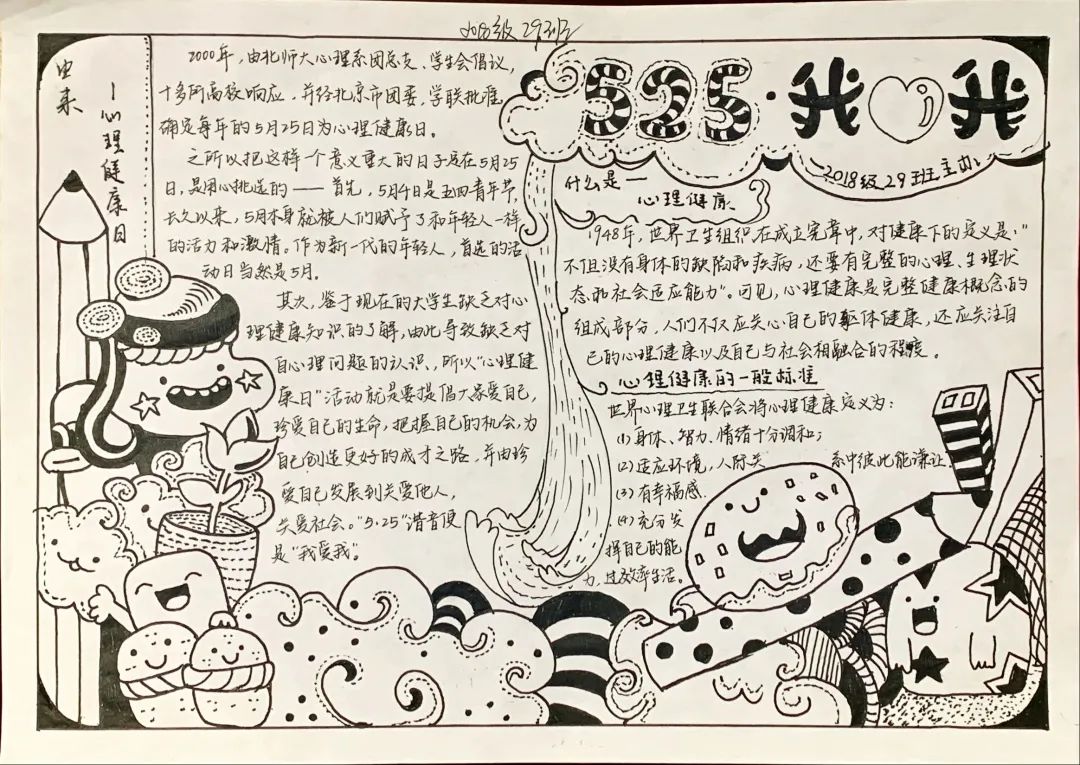 2018级 29班
525·我 我
2018级29班主办
由来
—心理健康日
2000年,由北师大心理系团总支、学生会倡议,
十多所高校响应,并经北京市团委、学联批准,
确定每年的5月25日为心理健康日。
之所以把这样一个意义重大的日子定在5月25
日,是用心挑选的——首先,5月4日是五四青年节,
长久以来,5月本身就被人们赋予了和年轻人一样
的活力和激情。作为新一代的年轻人,首选的活
动日当然是5月。
其次,鉴于现在的大学生缺乏对心
理健康知识的了解,由此导致缺乏对
自心理问题的认识,所以“心理健
康日”活动就是要提倡大家爱自己,
珍爱自己的生命,把握自己的机会,为
自己创造更好的成才之路,并由珍
爱自己发展到关爱他人,
关爱社会。“5.25”谐音便
是“我爱我”。
什么是—
心理健康
1948年,世界卫生组织在成立宪章中,对健康下的定义是:“
不但没有身体的缺陷和疾病,还要有完整的心理、生理状
态和社会适应能力”。可见,心理健康是完整健康概念的
组成部分,人们不仅应关心自己的躯体健康,还应关注自
己的心理健康以及自己与社会相融合的程度。
心理健康的一般标准
世界心理卫生联合会将心理健康定义为:
(1)身体、智力、情绪十分调和;
(2)适应环境,人际关 系中彼此能谦让
(3)有幸福感.
(4)充分发
挥自己的能
力,过效率生活。